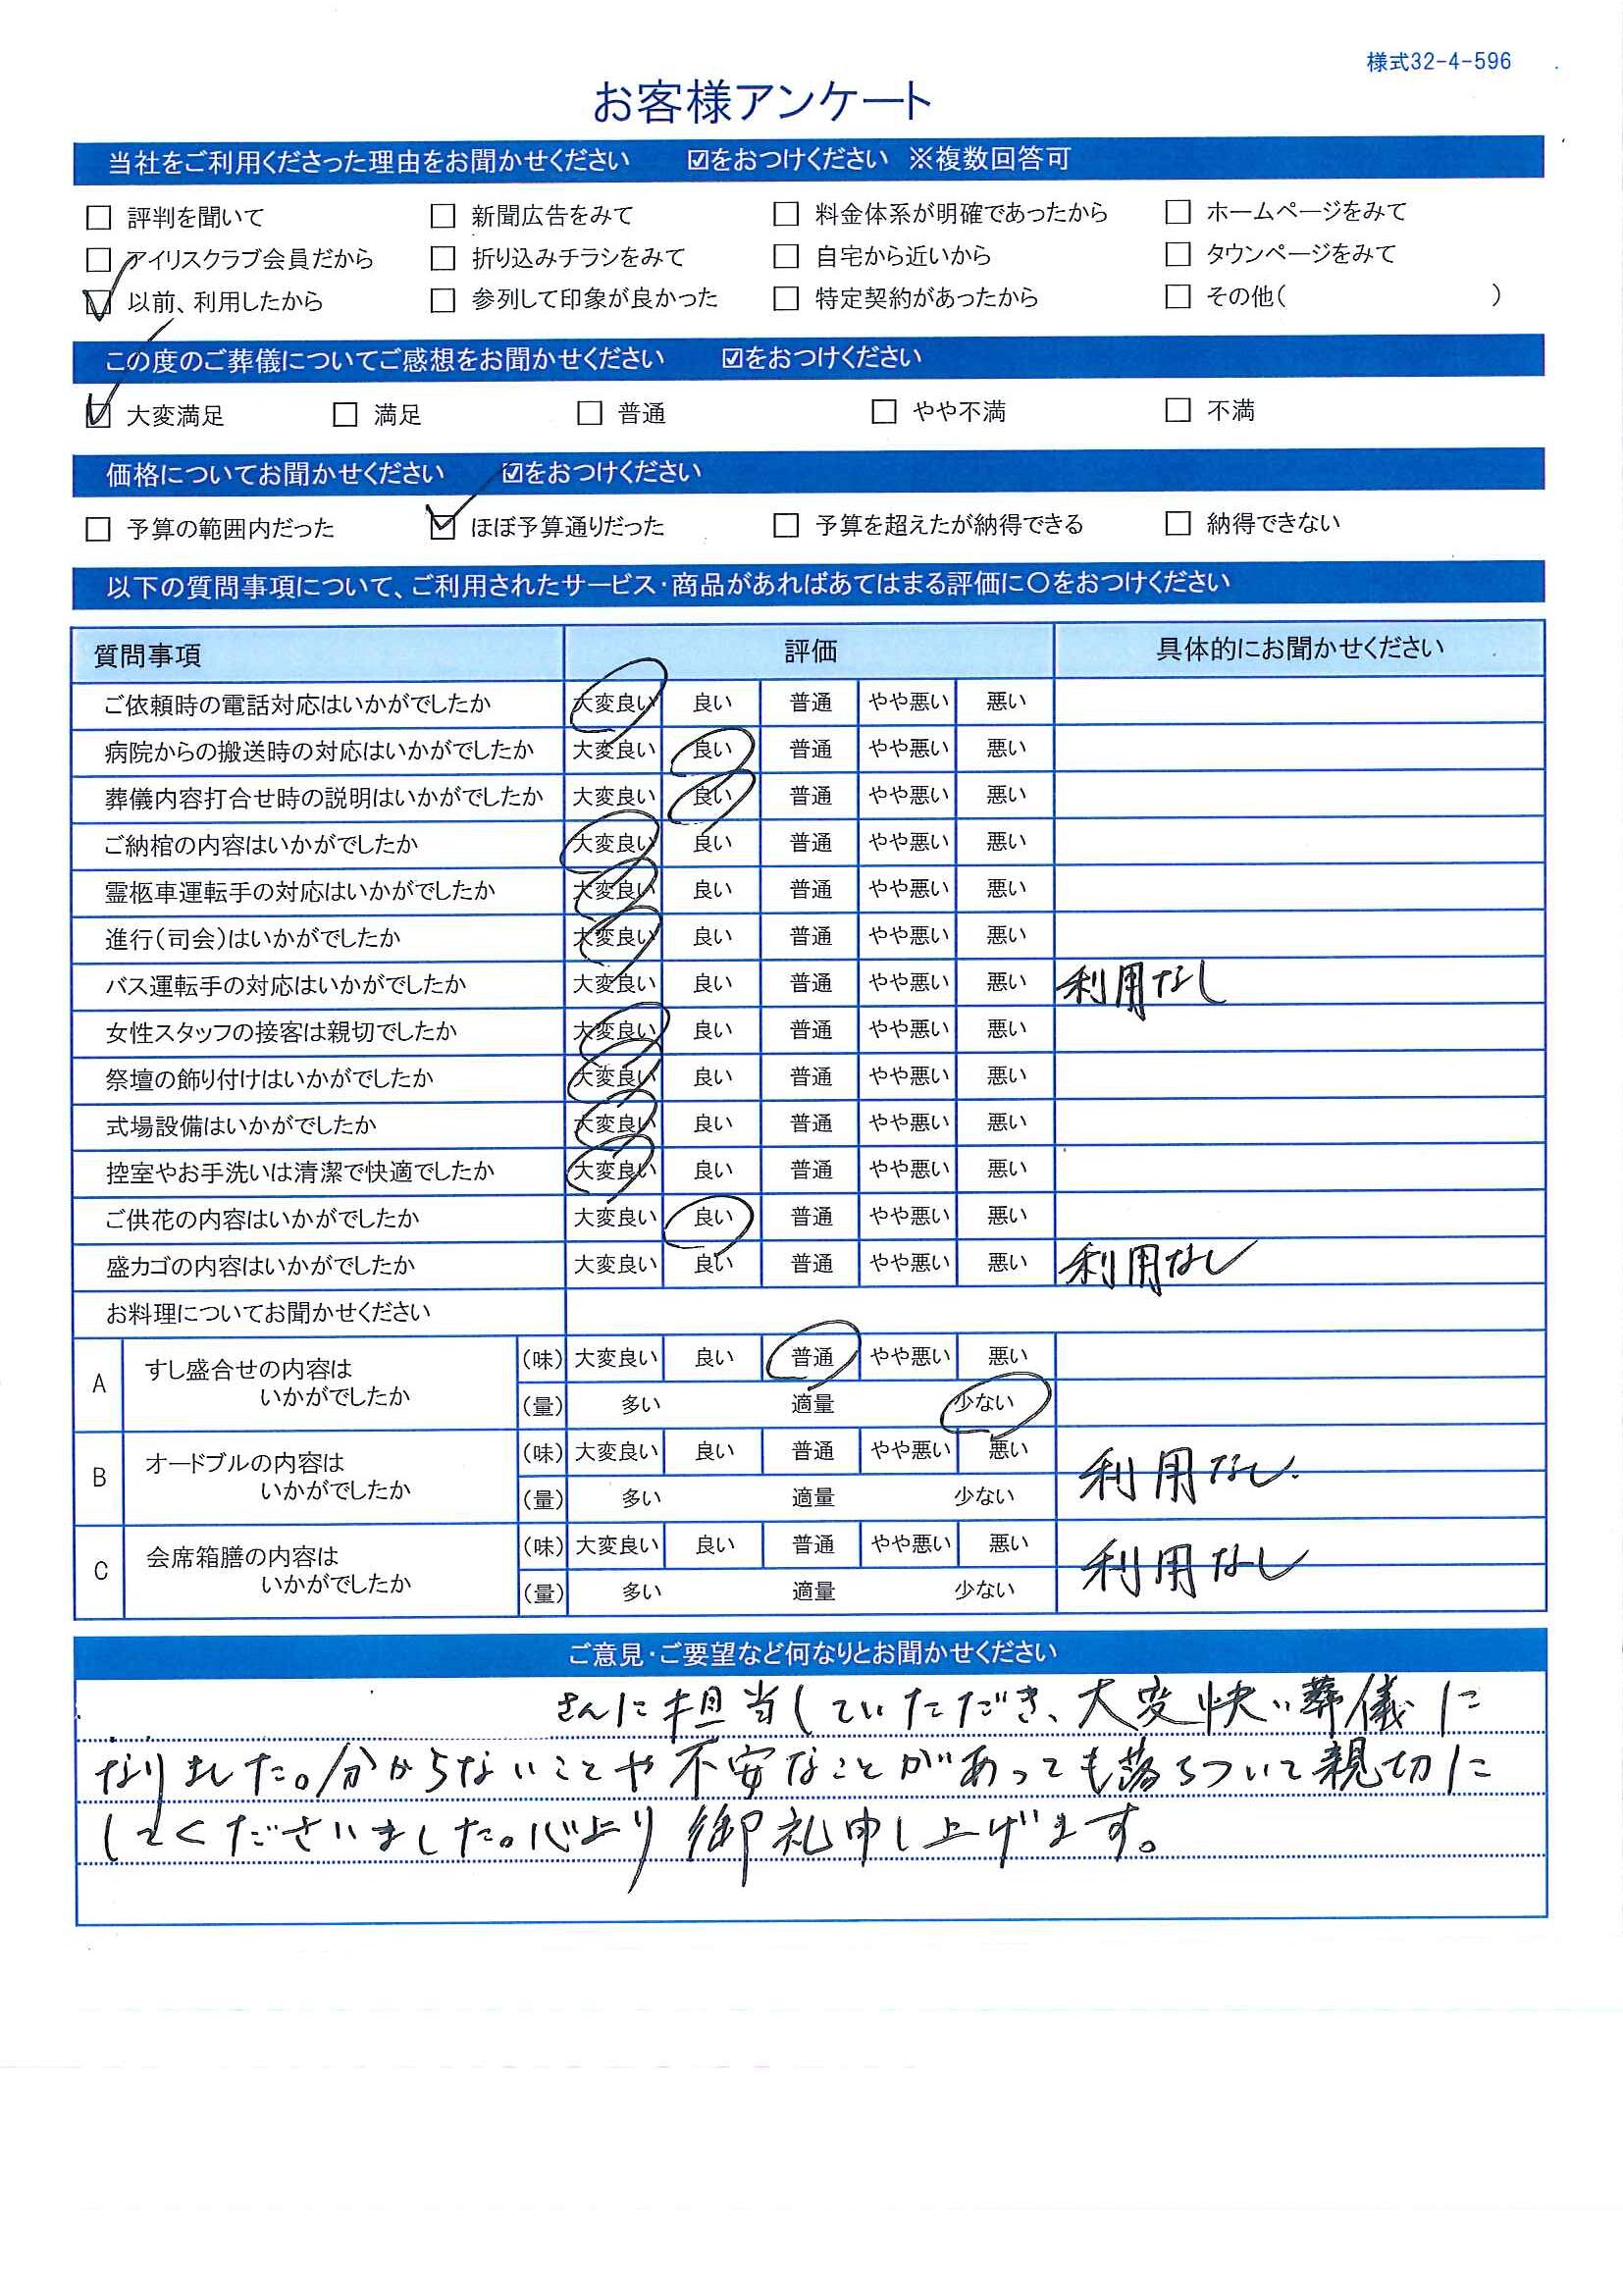 様式32-4-596
お客様アンケート
当社をご利用くださった理由をお聞かせください ☑をおつけください ※複数回答可
☐ 評判を聞いて ☐ 新聞広告をみて ☐ 料金体系が明確であったから ☐ ホームページをみて
☐ アイリスクラブ会員だから ☐ 折り込みチラシをみて ☐ 自宅から近いから ☐ タウンページをみて
☑ 以前、利用したから ☐ 参列して印象が良かった ☐ 特定契約があったから ☐ その他( )
この度のご葬儀についてご感想をお聞かせください ☑をおつけください
☑ 大変満足 ☐ 満足 ☐ 普通 ☐ やや不満 ☐ 不満
価格についてお聞かせください ☑をおつけください
☐ 予算の範囲内だった ☑ ほぼ予算通りだった ☐ 予算を超えたが納得できる ☐ 納得できない
以下の質問事項について、ご利用されたサービス・商品があればあてはまる評価に〇をおつけください
質問事項 評価 具体的にお聞かせください
ご依頼時の電話対応はいかがでしたか 大変良い 良い 普通 やや悪い 悪い
病院からの搬送時の対応はいかがでしたか 大変良い 良い 普通 やや悪い 悪い
葬儀内容打合せ時の説明はいかがでしたか 大変良い 良い 普通 やや悪い 悪い
ご納棺の内容はいかがでしたか 大変良い 良い 普通 やや悪い 悪い
霊柩車運転手の対応はいかがでしたか 大変良い 良い 普通 やや悪い 悪い
進行(司会)はいかがでしたか 大変良い 良い 普通 やや悪い 悪い
バス運転手の対応はいかがでしたか 大変良い 良い 普通 やや悪い 悪い 利用なし
女性スタッフの接客は親切でしたか 大変良い 良い 普通 やや悪い 悪い
祭壇の飾り付けはいかがでしたか 大変良い 良い 普通 やや悪い 悪い
式場設備はいかがでしたか 大変良い 良い 普通 やや悪い 悪い
控室やお手洗いは清潔で快適でしたか 大変良い 良い 普通 やや悪い 悪い
ご供花の内容はいかがでしたか 大変良い 良い 普通 やや悪い 悪い
盛カゴの内容はいかがでしたか 大変良い 良い 普通 やや悪い 悪い 利用なし
お料理についてお聞かせください
A すし盛合せの内容は
いかがでしたか
(味) 大変良い 良い 普通 やや悪い 悪い
(量) 多い 適量 少ない
B オードブルの内容は
いかがでしたか
(味) 大変良い 良い 普通 やや悪い 悪い
(量) 多い 適量 少ない
利用なし.
C 会席箱膳の内容は
いかがでしたか
(味) 大変良い 良い 普通 やや悪い 悪い
(量) 多い 適量 少ない
利用なし
ご意見・ご要望など何なりとお聞かせください
さんに担当していただき、大変快い葬儀に
なりました。分からないことや不安なことがあっても落ちついて親切に
してくださいました。心より御礼申し上げます。